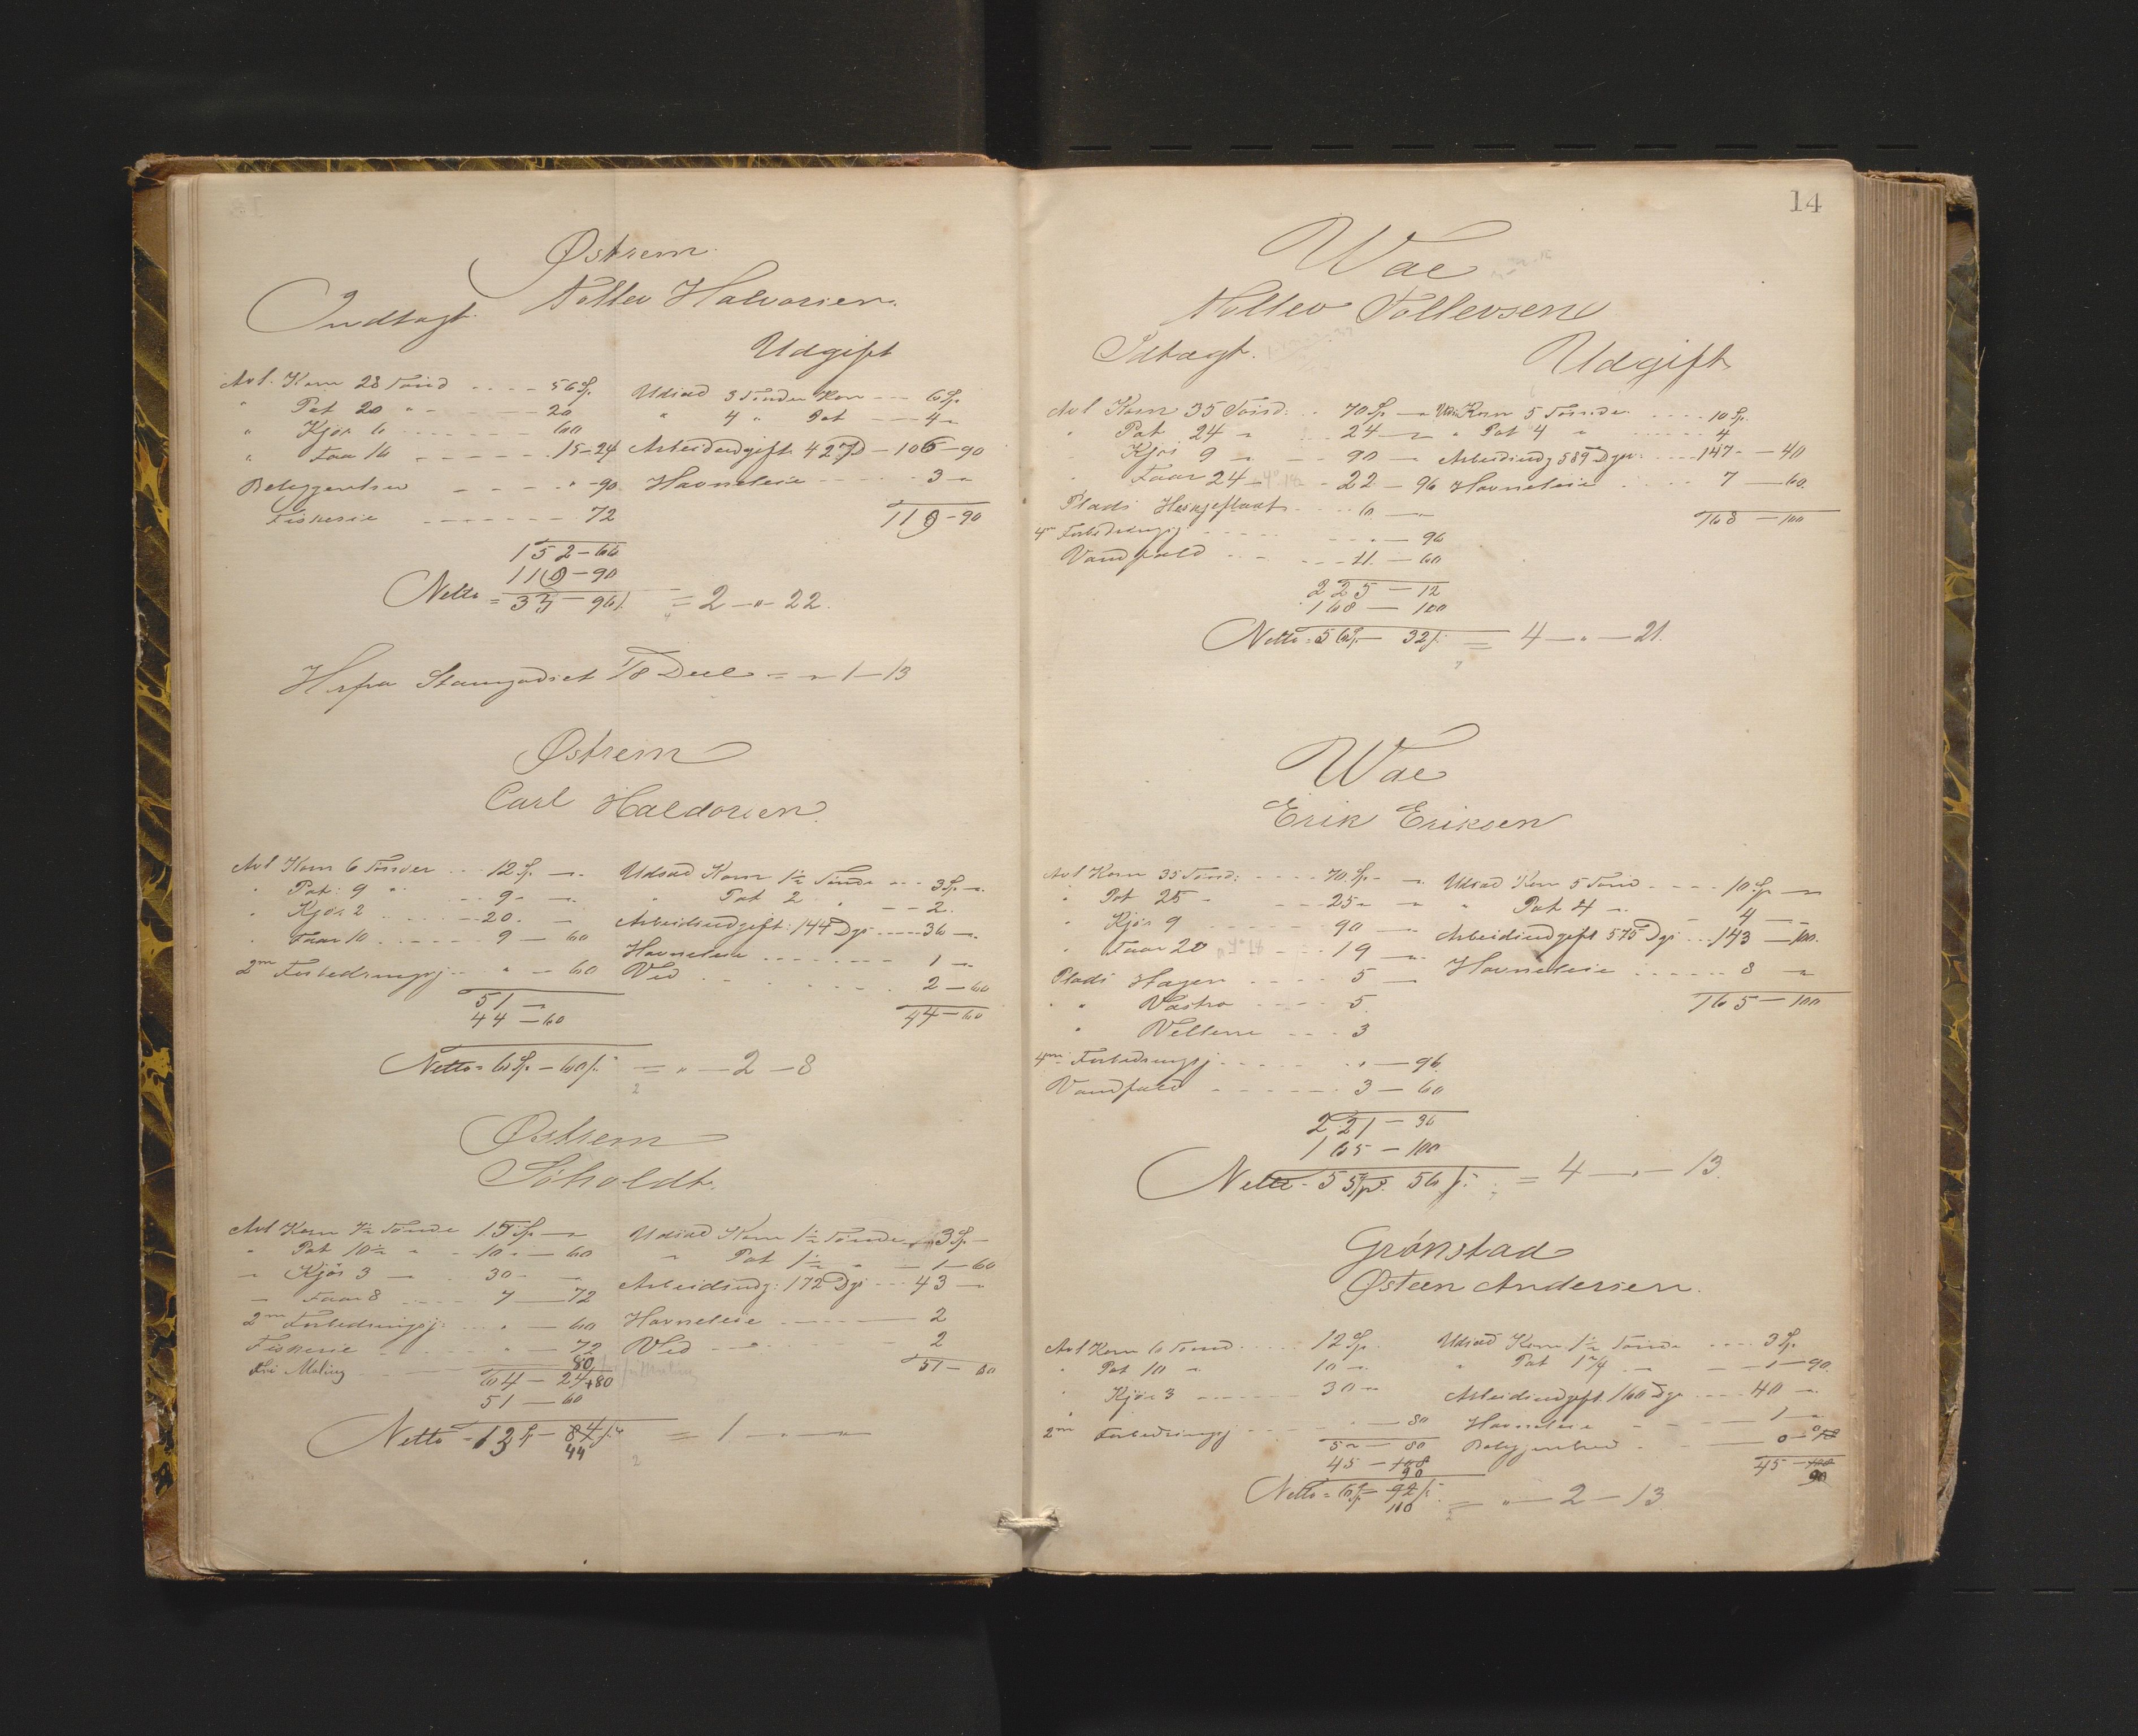 Østrem
Tollev Halvorsen
Indtægt.
Udgift
Avl. Korn 28 Tønd - - - - 56 Sp. Udsæd 3 Tønder Korn - - - 6 Sp.
" Pot 20 " - - - - - 20 " 4 " Pot - - - 4 "
" Kjør 6 - - - - - - 60
" Faar 16 - - - - - 15 - 24 Arbeidsudgift 427 D - 106 - 90
Beleggenhed - - - - " - 90 Havneleie - - - - - - 3 "
Fiskerie - - - - - - - 72 119 - 90
152 - 66
119 - 90
Netto = 33 - 96 s. = 2 - " - 22.
Herfra Stamgodset 1/8 Deel = " 1 - 13
Østrem
Carl Haldorsen
Avl Korn 6 Tønder - - - 12 Sp. - " Udsæd Korn 1 1/2 Tønde - - - 3 Sp. - "
" Pot: 9 " - - - 9 - " " Pot 2 " - - 2.
" Kjør 2 - - - - 20 - "
" Faar 10 - - - - - 9 - 60 Arbeidsudgift: 144 Dgs - - - - 36 - "
Havneleie - - - - - - - 1 - "
2m Forbedringsj - - " - 60 Ved - - - - - - - 2 - 60
51 - " 44 - 60
44 - 60
Netto = 6 Sp. - 60 s. = " - 2 - 8
2
Østrem
Søholdt.
Avl Korn 7 1/2 Tønde 15 Sp. - " Udsæd Korn 1 1/2 Tønde 3 Sp. -
" Pot 10 1/2 " - 10 - - 60 " Pot 1 1/2 " - 1 - 60
" Kjør 3 - - 30 - " Arbeidsudg: 172 Dgs - - - 43 - "
- Faar 8 - - - - 7 - 72
2m Forbedringsj: - - " - 60 Havneleie - - - - - - 2
Fiskerie - - - - - " - 72 Ved - - " - - - - 2
Fri Maling - - - - 80 51 - 60
64 - 24 + 80
51 - 60
Netto = 13 Sp - 84 s. = 1 - " - "
44
2
14
Wae
Tollev Tollevsen
Idtægt.
Udgift
Avl Korn 35 Tønd: - - 70 Sp. - " Uds. Korn 5 Tønder - - - - 10 Sp.
" Pot 24 " - - - 24 - " " Pot 4 " - - - - - 4
" Kjør 9 " - - 90 - " Arbeidsudg 589 Dgs: - - - - 147 - - 40
" Faar 24 - - 22 - 96 Havneleie - - - - - 7 - 60.
Plads - - - - 6 - " 168 - 100
4m Forbedringsj - - - - - " - 96
Vandfald - - - - - 11 - 60
225 - 12
168 - 100
Netto = 56 Sp. - 32 s. = 4 - " - 21.
Wae
Erik Eriksen
Avl Korn 35 Tønd: - - - - 70 Sp. - " Udsæd Korn 5 Tønd - - - - 10 Sp. - "
" Pot 25 " - - - 25 " " " Pot 4 " - 4 - -
" Kjør 9 - - - - - 90 - " Arbeidsudgift 575 Dgs - - - 143 - 100.
" Faar 20 - - - 19 - "
Plads Hagen - - - - - 5 - Havneleie - - - - - - 8 - "
" " - - - - 5. 165 - 100
" - - - 3
4m Forbedringsj - - - - - " - 96
Vandfald - - - - - - - 3 - 60
221 - 36
165 - 100
Netto = 55 Sp. 56 s. = 4 - " - 13.
Grønstad
Østeen Andersen.
Avl Korn 6 Tønd - - - - - 12 Sp. Udsæd Korn 1 1/2 Tønde - - - - 3 Sp.
" Pot 10 " - - - - - 10 - " " Pot 1 3/4 - - - - 1 - 90.
" Kjør 3 - - - - - - 30 - " Arbeidsudgift 160 Dgs - - - - 40 - "
2m Forbedringsj - - - " - 80 Havneleie - - - - 1 - "
52 - 80 - - 0 - 018
45 - 108 45 - 108
90 90
Netto = 6 Sp - 92 s. = " - 2 - 13
110